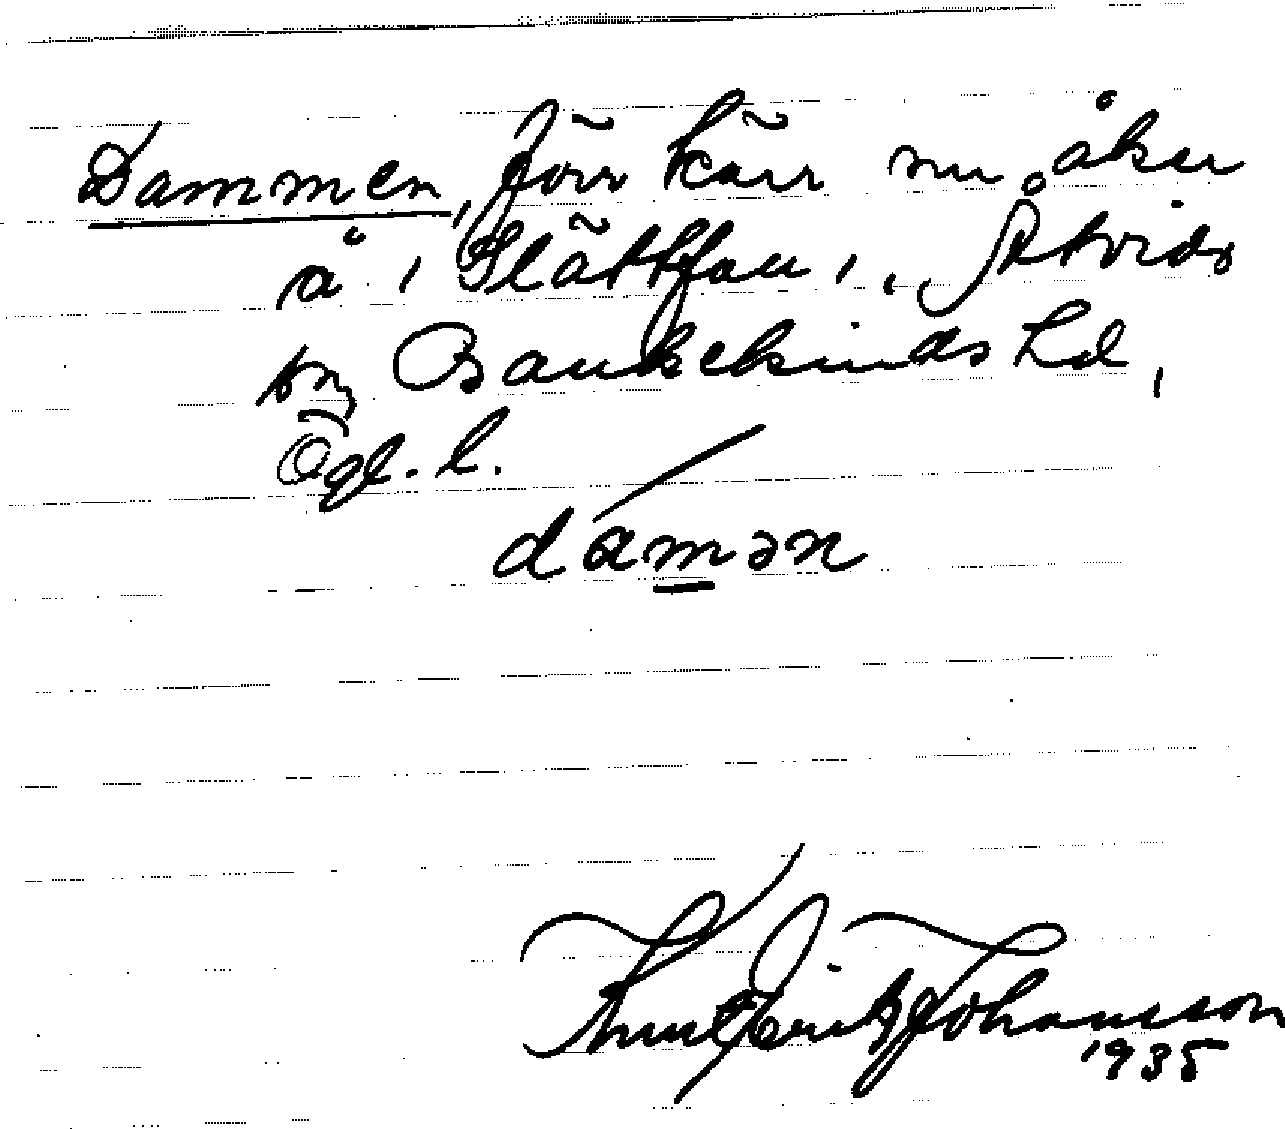 Dammen, förr kärr nu åker
å, Slättfall, Åtvids
sn, Bankekinds hd,
Ögl. l.
damən
Knut Erik Johansson
1935